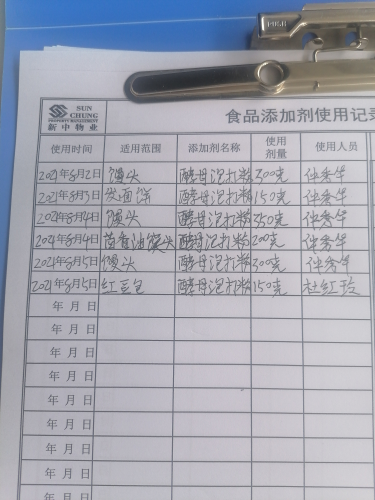 PULL
SUN
CHUNG
PROPERTY MANAGEMENT
新中物业
食品添加剂使用记
使用时间 适用范围 添加剂名称 使用剂量 使用人员
2021年8月2日 馒头 酵母泡打粉 300克 仲秀华
2021年8月3日 发面饼 酵母泡打粉 150克 仲秀华
2021年8月4日 馒头 酵母泡打粉 350克 仲秀华
2021年8月4日 茴香油馒头 酵母泡打粉 200克 仲秀华
2021年8月5日 馒头 酵母泡打粉 300克 仲秀华
2021年8月5日 红豆包 酵母泡打粉 150克 杜红玲
年 月 日
年 月 日
年 月 日
年 月 日
年 月 日
年 月 日
年 月 日
年 月 日
年 月 日